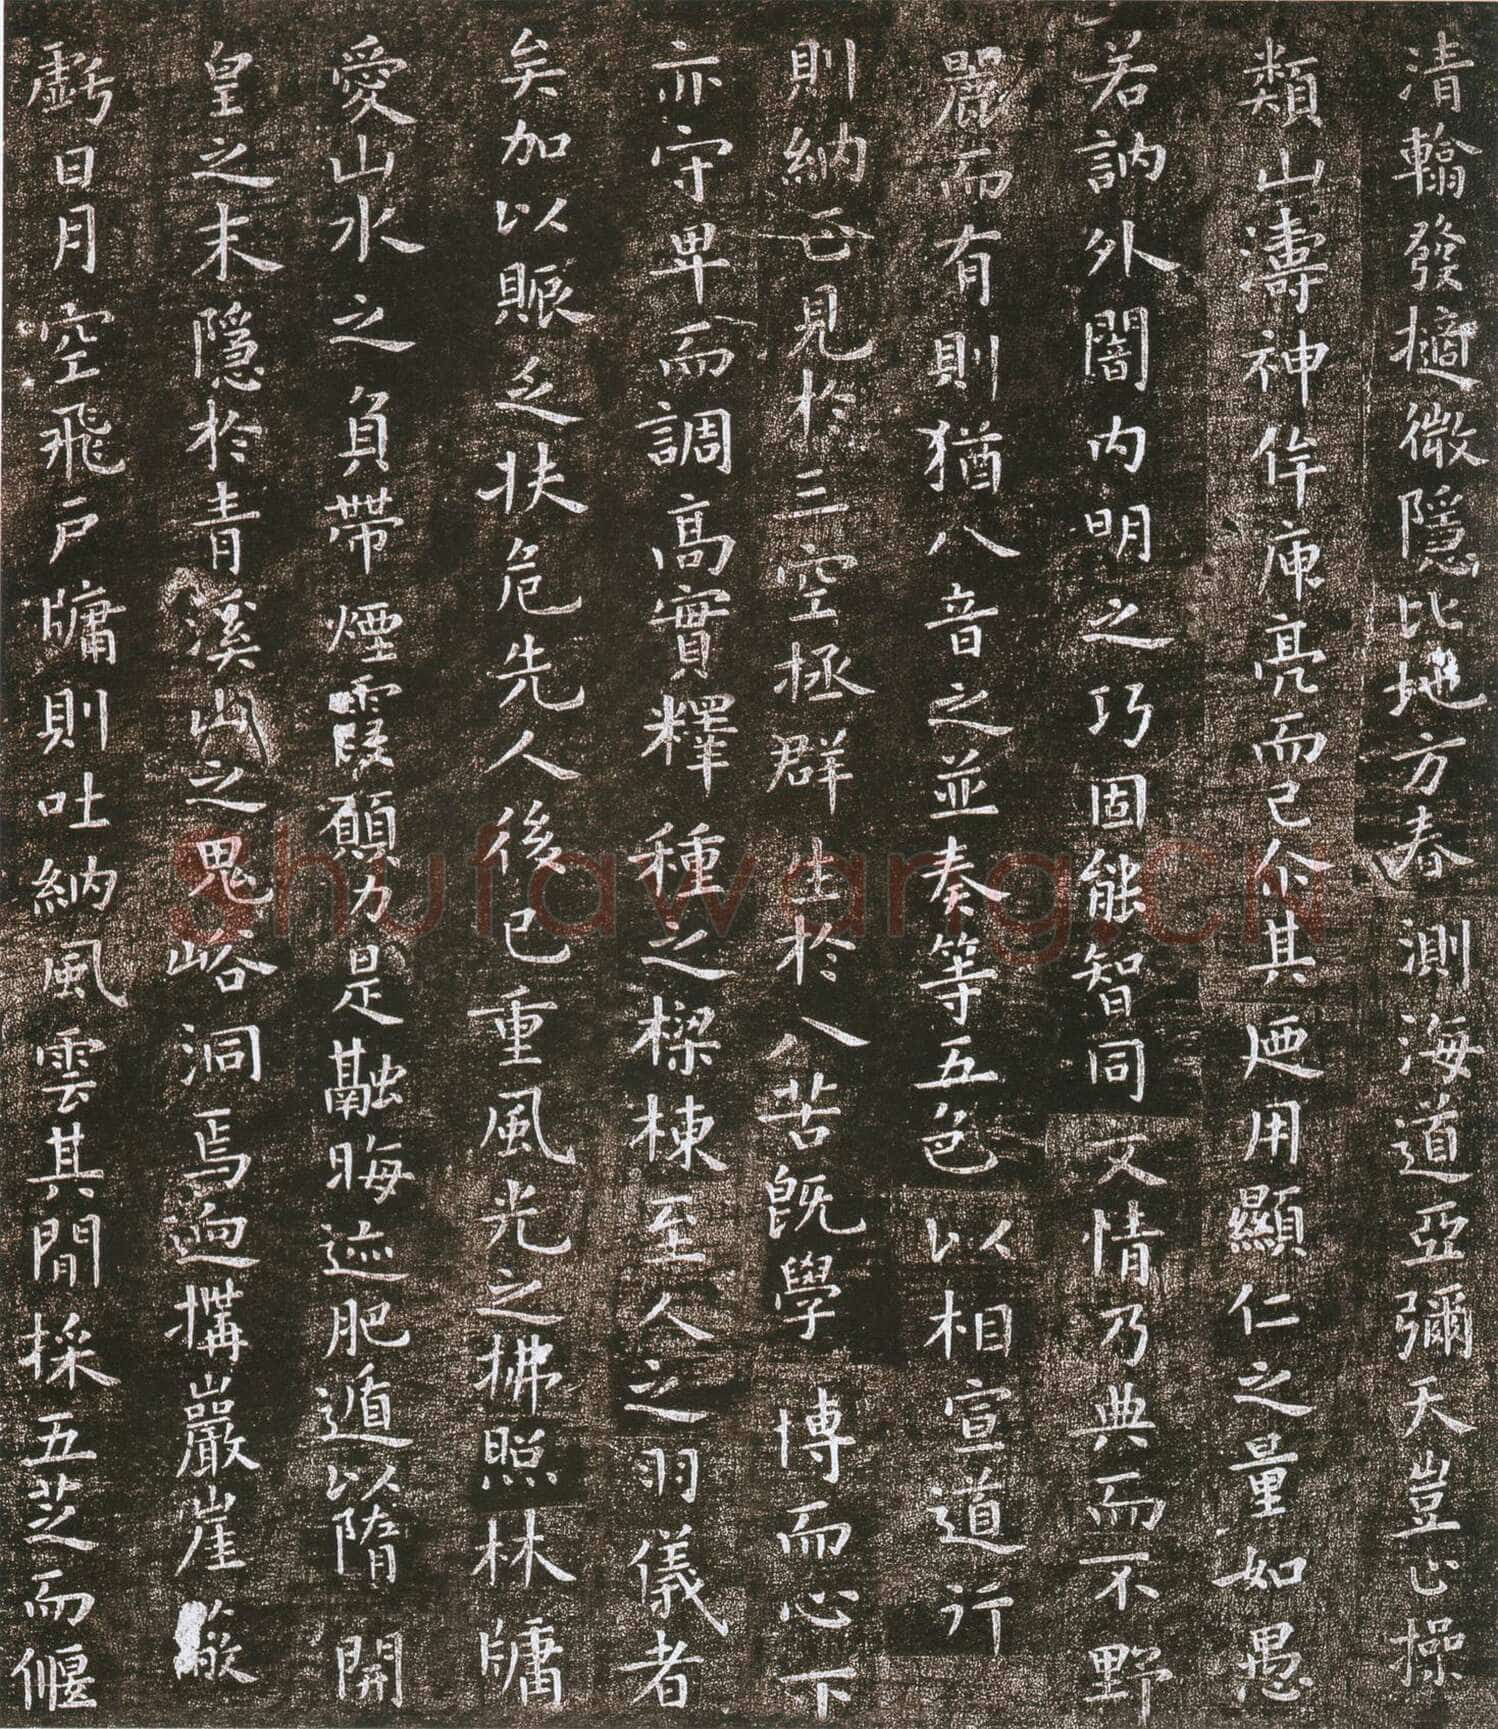 清翰發擿微隱比地方春測海道亞彌天豈止操
類山濤神侔庾亮而已尒其迺用顯仁之量如愚
若訥外闇内明之巧固能智同文情乃典而不野
麗而有則猶八音之並奏等五色以相宣道行
則納已見於三空拯群生於八苦既學博而心下
亦守卑而調高實釋種之樑棟至人之羽儀者
矣加以賑乏扶危先人後已重風光之拂照林牖
愛山水之負帶煙霞願力是融晦迹肥遁以隋開
皇之末隱於青溪山之鬼峪洞焉迥構巖崖蔽
虧日月空飛戶牖則吐納風雲其間採五芝而偃
Shufawang.CN